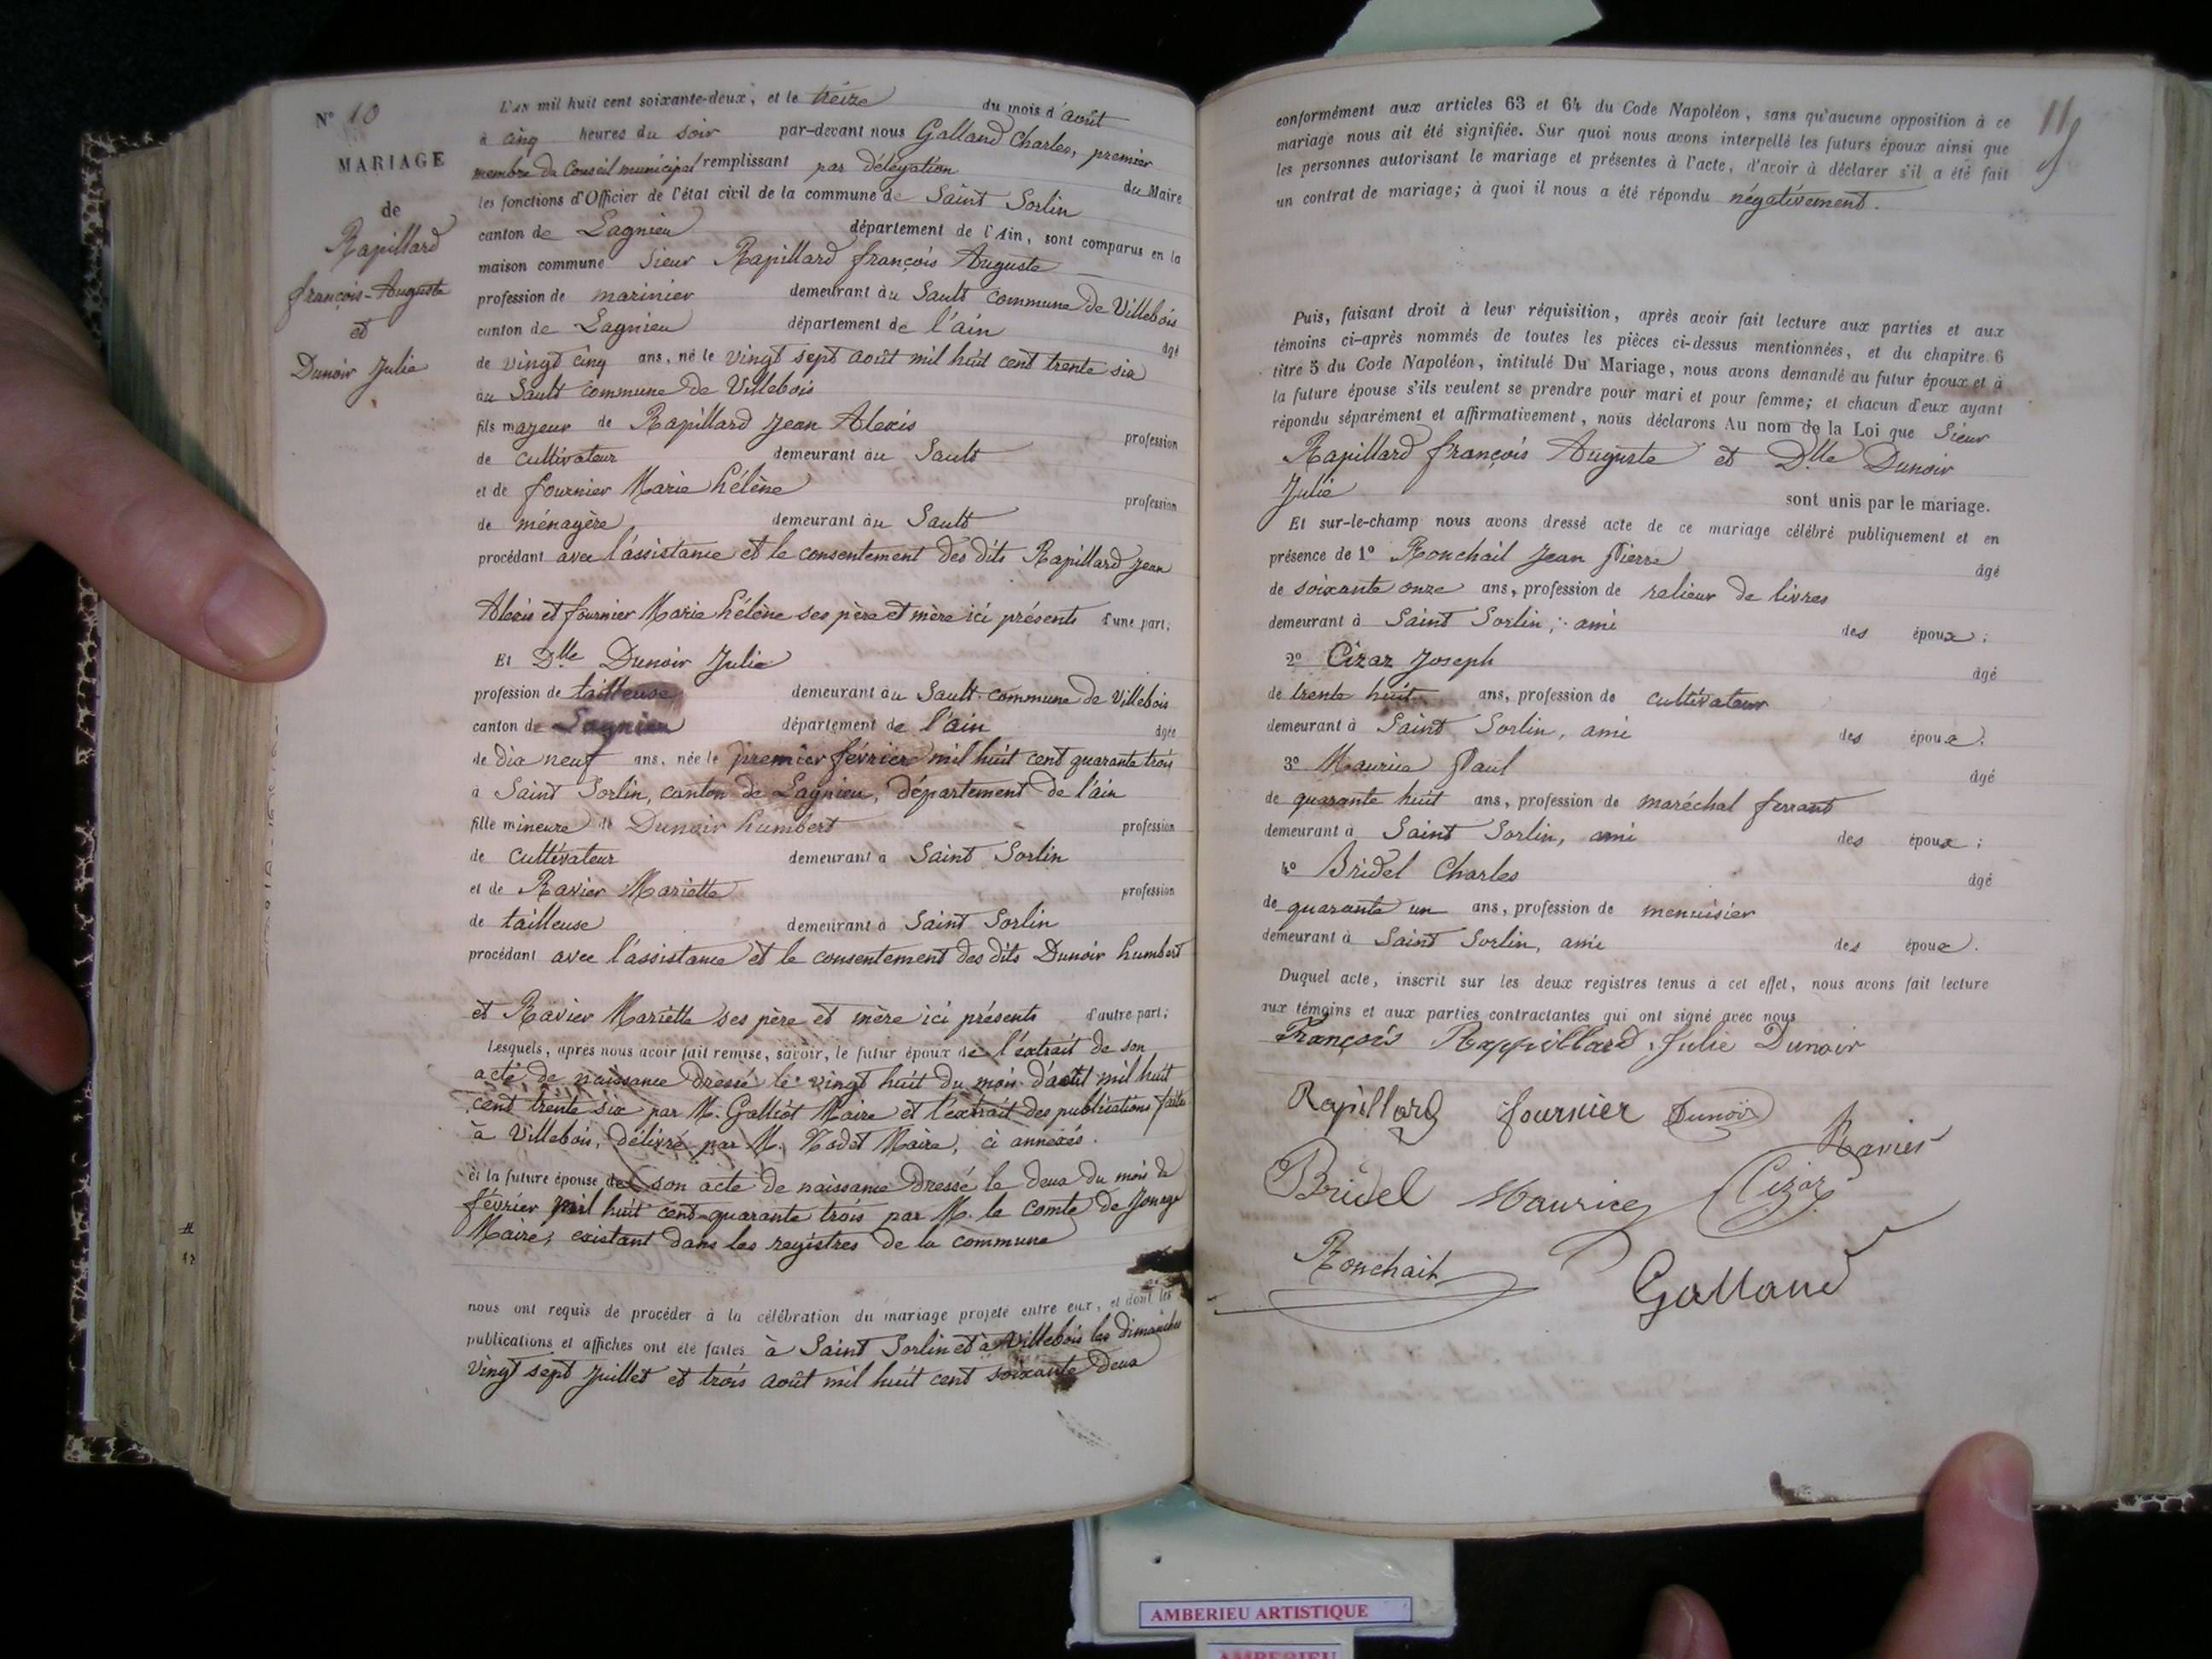 N° 10
MARIAGE
de
Rapillard
françois-Auguste
et
Dunoir Julie
L'AN mil huit cent soixante-deux, et le treize du mois d'août
à cinq heures du soir par-devant nous Galland Charles, premier
membre du Conseil municipal remplissant par délégation du Maire
les fonctions d'Officier de l'état civil de la commune de Saint Sorlin
canton de Lagnieu département de l'Ain, sont comparus en la
maison commune Sieur Rapillard françois Auguste
profession de marinier demeurant au Sault commune de Villebois
canton de Lagnieu département de l'ain âgé
de vingt cinq ans, né le vingt sept août mil huit cent trente six
au Sault commune de Villebois
fils majeur de Rapillard Jean Alexis profession
de cultivateur demeurant au Sault
et de fournier Marie hélène profession
de ménagère demeurant au Sault
procédant avec l'assistance et le consentement des dits Rapillard Jean
Alexis et fournier Marie hélène ses père et mère ici présents d'une part;
Et Dlle Dunoir Julie
profession de tailleuse demeurant au Sault commune de Villebois
canton de Lagnieu département de l'ain âgée
de dix neuf ans, née le premier février mil huit cent quarante trois
à Saint Sorlin, canton de Lagnieu, département de l'ain
fille mineure de Dunoir humbert profession
de cultivateur demeurant à Saint Sorlin
et de Ravier Mariette profession
de tailleuse demeurant à Saint Sorlin
procédant avec l'assistance et le consentement des dits Dunoir humbert
et Ravier Mariette ses père et mère ici présents d'autre part;
Lesquels, après nous avoir fait remise, savoir, le futur époux de l'extrait de son
acte de naissance dressé le vingt huit du mois d'août mil huit
cent trente six par M. Galliot Maire et l'extrait des publications faites
à Villebois, délivré par M. Nodet Maire, ci annexés.
et la future épouse de son acte de naissance dressé le deux du mois de
février mil huit cent quarante trois par M. le comte de Jonage
Maire, existant dans les registres de la commune
nous ont requis de procéder à la célébration du mariage projeté entre eux, et dont les
publications et affiches ont été faites à Saint Sorlin et à Villebois les dimanches
vingt sept Juillet et trois août mil huit cent soixante deux
11
conformément aux articles 63 et 64 du Code Napoléon, sans qu'aucune opposition à ce
mariage nous ait été signifiée. Sur quoi nous avons interpellé les futurs époux ainsi que
les personnes autorisant le mariage et présentes à l'acte, d'avoir à déclarer s'il a été fait
un contrat de mariage; à quoi il nous a été répondu négativement.
Puis, faisant droit à leur réquisition, après avoir fait lecture aux parties et aux
témoins ci-après nommés de toutes les pièces ci-dessus mentionnées, et du chapitre 6
titre 5 du Code Napoléon, intitulé Du Mariage, nous avons demandé au futur époux et à
la future épouse s'ils veulent se prendre pour mari et pour femme; et chacun d'eux ayant
répondu séparément et affirmativement, nous déclarons Au nom de la Loi que Sieur
Rapillard françois Auguste et Dlle Dunoir
Julie sont unis par le mariage.
Et sur-le-champ nous avons dressé acte de ce mariage célébré publiquement et en
présence de 1° Ronchail Jean Pierre âgé
de soixante onze ans, profession de relieur de livres
demeurant à Saint Sorlin, ami des époux;
2° Cizaz Joseph âgé
de trente huit ans, profession de cultivateur
demeurant à Saint Sorlin, ami des époux;
3° Maurice Paul âgé
de quarante huit ans, profession de maréchal ferrant
demeurant à Saint Sorlin, ami des époux;
4° Bridel Charles âgé
de quarante un ans, profession de menuisier
demeurant à Saint Sorlin, ami des époux.
Duquel acte, inscrit sur les deux registres tenus à cet effet, nous avons fait lecture
aux témoins et aux parties contractantes qui ont signé avec nous
François Rappillard. Julie Dunoir
Rapillard fournier Dunoir
Ravier
Bridel Maurice Cizaz
Ronchail
Galland
AMBERIEU ARTISTIQUE
AMBERIEU